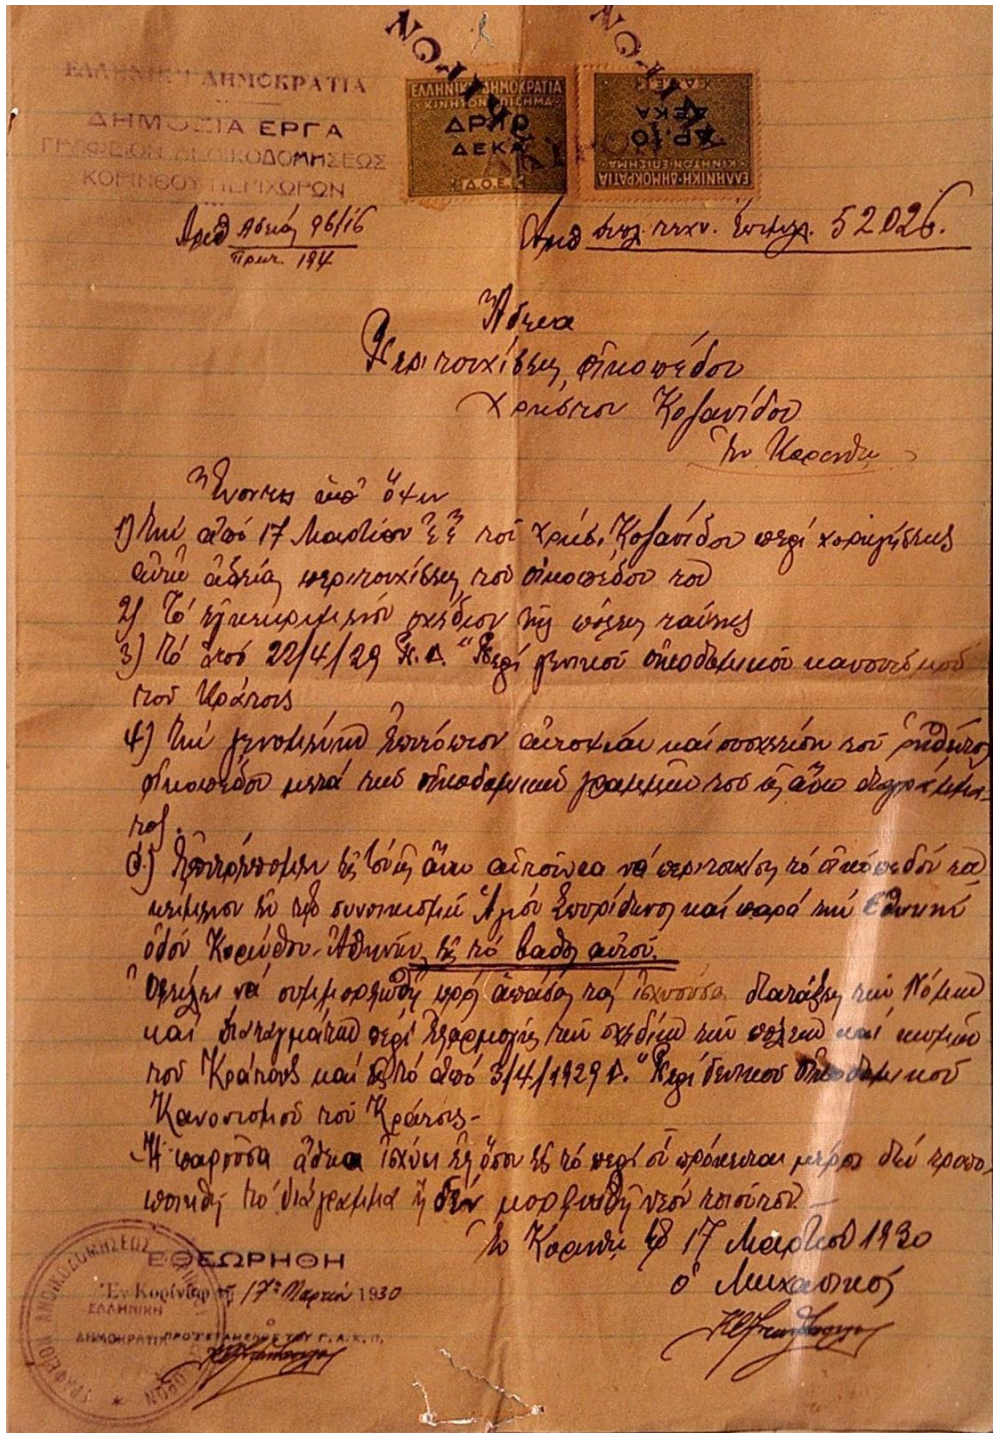 ΕΛΛΗΝΙΚΗ ΔΗΜΟΚΡΑΤΙΑ
ΔΗΜΟΣΙΑ ΕΡΓΑ
ΓΡΑΦΕΙΟΝ ΑΝΟΙΚΟΔΟΜΗΣΕΩΣ
ΚΟΡΙΝΘΟΥ ΠΕΡΙΧΩΡΩΝ
ΕΛΛΗΝΙΚΗ ΔΗΜΟΚΡΑΤΙΑ
ΚΙΝΗΤΟΝ ΕΠΙΣΗΜΑ
ΔΡ.10
ΔΕΚΑ
Δ.Ο.Ε.
ΕΛΛΗΝΙΚΗ ΔΗΜΟΚΡΑΤΙΑ
ΚΙΝΗΤΟΝ ΕΠΙΣΗΜΑ
ΔΡ.10
ΔΕΚΑ
Αριθ αδείας 96/16
Πρωτ. 194
Αριθ διπλ. τεχν. 52026.
Ἄδεια
Περιτοιχίσεως οἰκοπέδου
Χρήστου Κοζανίδου
Ἐν Κορίνθῳ
Ἔχοντες ὑπ' ὄψιν
1) Τὴν ἀπό 17 Μαρτίου τοῦ Χρήσ. Κοζανίδου περί χορηγήσεως
αὐτῷ ἀδείας περιτοιχίσεως τοῦ οἰκοπέδου του
2) Τό ἐγκεκριμένον σχέδιον τῆς πόλεως ταύτης
3) Τό ἀπό 22/4/29 Π.Δ. "Περί γενικοῦ οἰκοδομικοῦ κανονισμοῦ
τοῦ Κράτους
4) Τήν γενομένην ἐπιτόπιον αὐτοψίαν καί συσχέτισιν τοῦ ρηθέντος
οἰκοπέδου μετά τῶν οἰκοδομικῶν γραμμῶν τοῦ ὡς ἄνω διαγράμμα-
τος.
Ἐπιτρέπομεν εἰς τόν ὡς ἄνω νά περιτοιχίσῃ τό οἰκόπεδόν του
κείμενον ἐν τῷ συνοικισμῷ Ἁγίου Σπυρίδωνος καί παρά τήν Ἐθνικήν
ὁδόν Κορίνθου-Ἀθηνῶν εἰς τό βάθος αὐτοῦ.
Ὀφείλει νά συμμορφωθῇ πρός ἁπάσας τάς ἰσχυούσας διατάξεις τῶν Νόμων
καί διαταγμάτων περί ἐφαρμογῆς τῶν σχεδίων τῶν πόλεων καί κωμῶν
τοῦ Κράτους καί εἰς τό ἀπό 3/4/1929 Δ. "Περί Γενικοῦ Οἰκοδομικοῦ
Κανονισμοῦ τοῦ Κράτους-
Ἡ παροῦσα ἄδεια ἰσχύει ἐφ' ὅσον εἰς τό περί οὗ πρόκειται μέρος δέν τροπο-
ποιηθῇ τό διάγραμμα ἤ δέν μορφωθῇ νέον τοιοῦτον -
Ἐν Κορίνθῳ τῇ 17 Μαρτίου 1930
Ὁ Μηχανικός
ΕΘΕΩΡΗΘΗ
Ἐν Κορίνθῳ τῇ 17ῃ Μαρτίου 1930
Ο
ΠΡΟΪΣΤΑΜΕΝΟΣ ΤΟΥ Γ.Α.Κ.Π.
ΓΡΑΦΕΙΟΝ ΑΝΟΙΚΟΔΟΜΗΣΕΩΣ
ΕΛΛΗΝΙΚΗ
ΔΗΜΟΚΡΑΤΙΑ